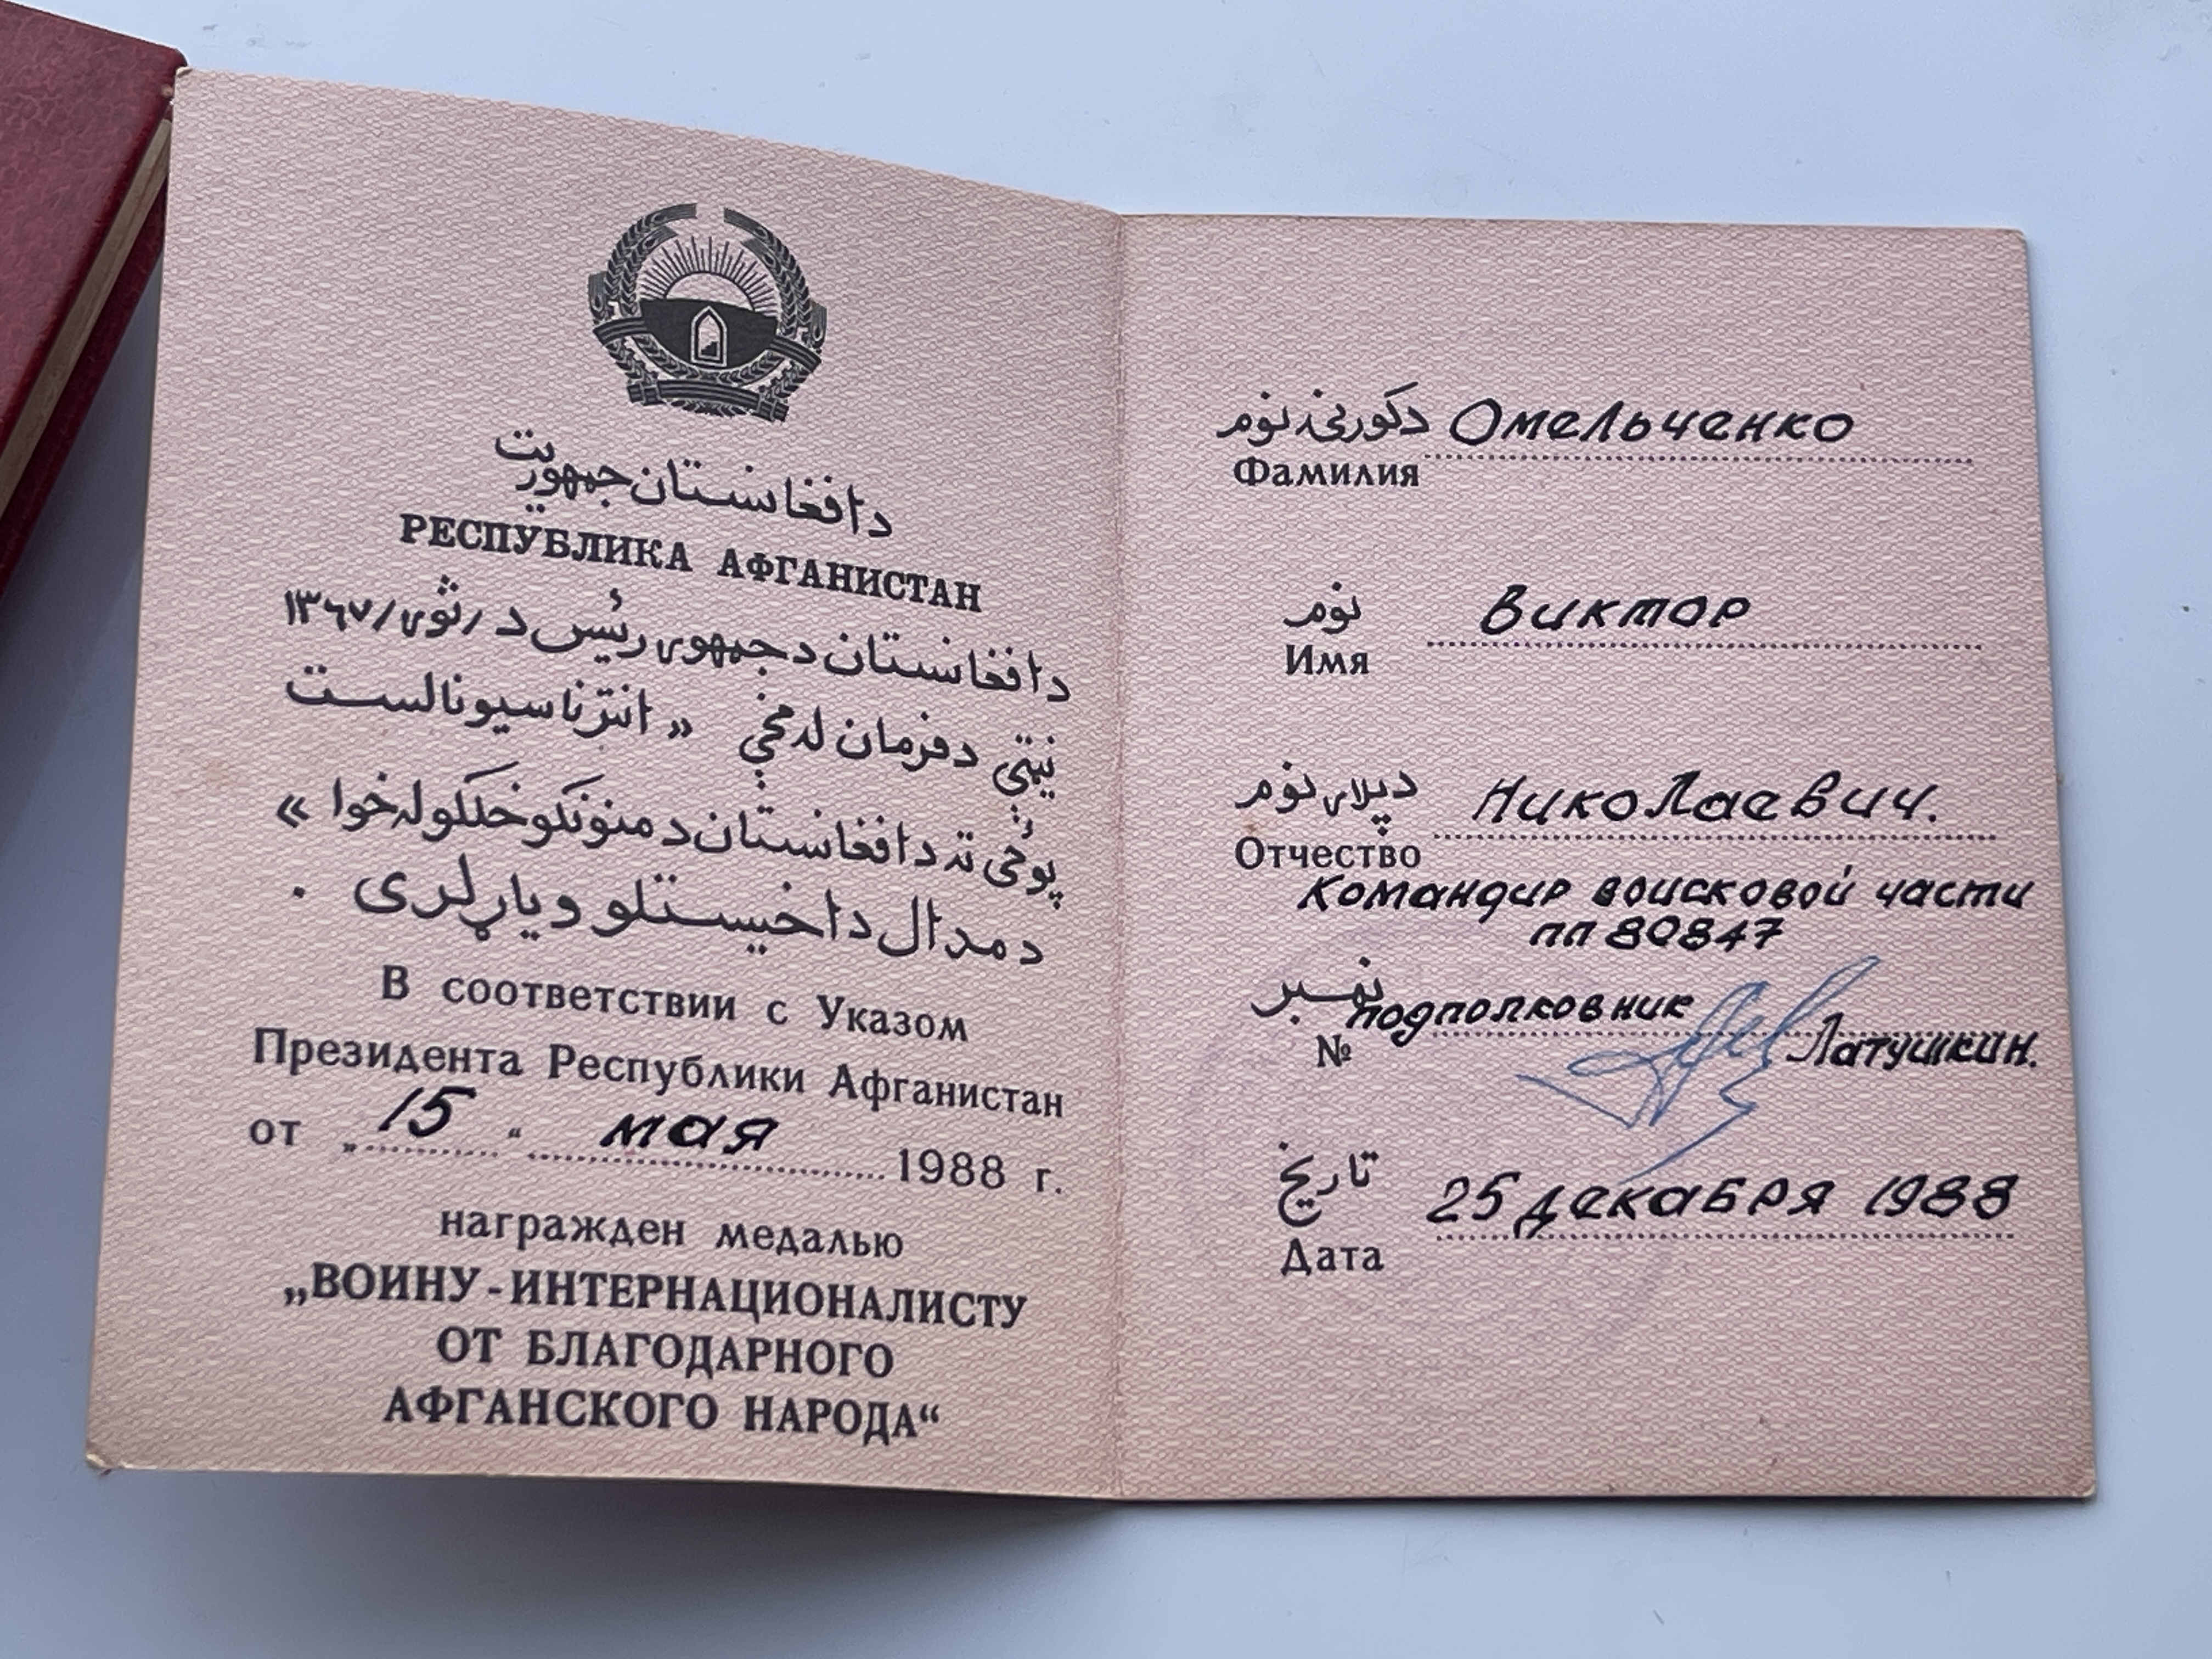 دافغانستان جمهوریت
РЕСПУБЛИКА АФГАНИСТАН
دافغانستان دجمهوری رئیس د / ثوری / ۱۳۶۷
نیټې دفرمان له مخې « انترناسیونالست
پوځی ته دافغانستان دمنونکو خلکو له خوا »
دمدال داخیستلو ویاړ لری .
В соответствии с Указом
Президента Республики Афганистан
от „ 15 “ мая 1988 г.
награжден медалью
„ВОИНУ-ИНТЕРНАЦИОНАЛИСТУ
ОТ БЛАГОДАРНОГО
АФГАНСКОГО НАРОДА“
دکورنۍ نوم Омельченко
Фамилия
نوم Виктор
Имя
دپلار نوم Николаевич.
Отчество
Командир войсковой части
пп 80847
نمبر подполковник Латушкин.
№
تاریخ 25 декабря 1988
Дата